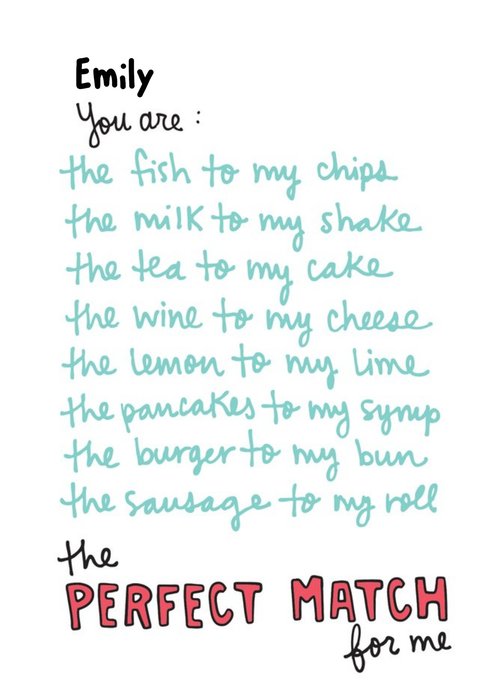 Emily
You are :
the fish to my chips
the milk to my shake
the tea to my cake
the wine to my cheese
the lemon to my lime
the pancakes to my syrup
the burger to my bun
the sausage to my roll
the
PERFECT MATCH
for me